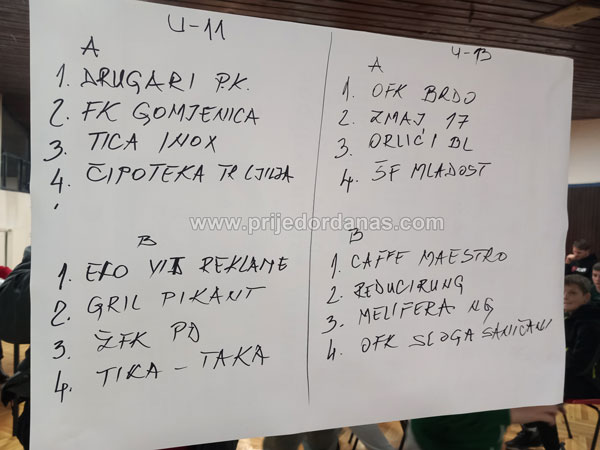 U-11
A
1. DRUGARI P.K.
2. FK GOMJENICA
3. TICA INOX
4. ČIPOTEKA TRLJILJA
B
1. EKO VIT REKLAME
2. GRIL PIKANT
3. ŽFK PD
4. TIKA - TAKA
U-13
A
1. OFK BRDO
2. ZMAJ 17
3. ORLIĆI BL
4. ŠF MLADOST
B
1. CAFFE MAESTRO
2. REDUCIRUNG
3. MELIFERA NG
4. OFK SLOGA SANIČANI
www.prijedordanas.com